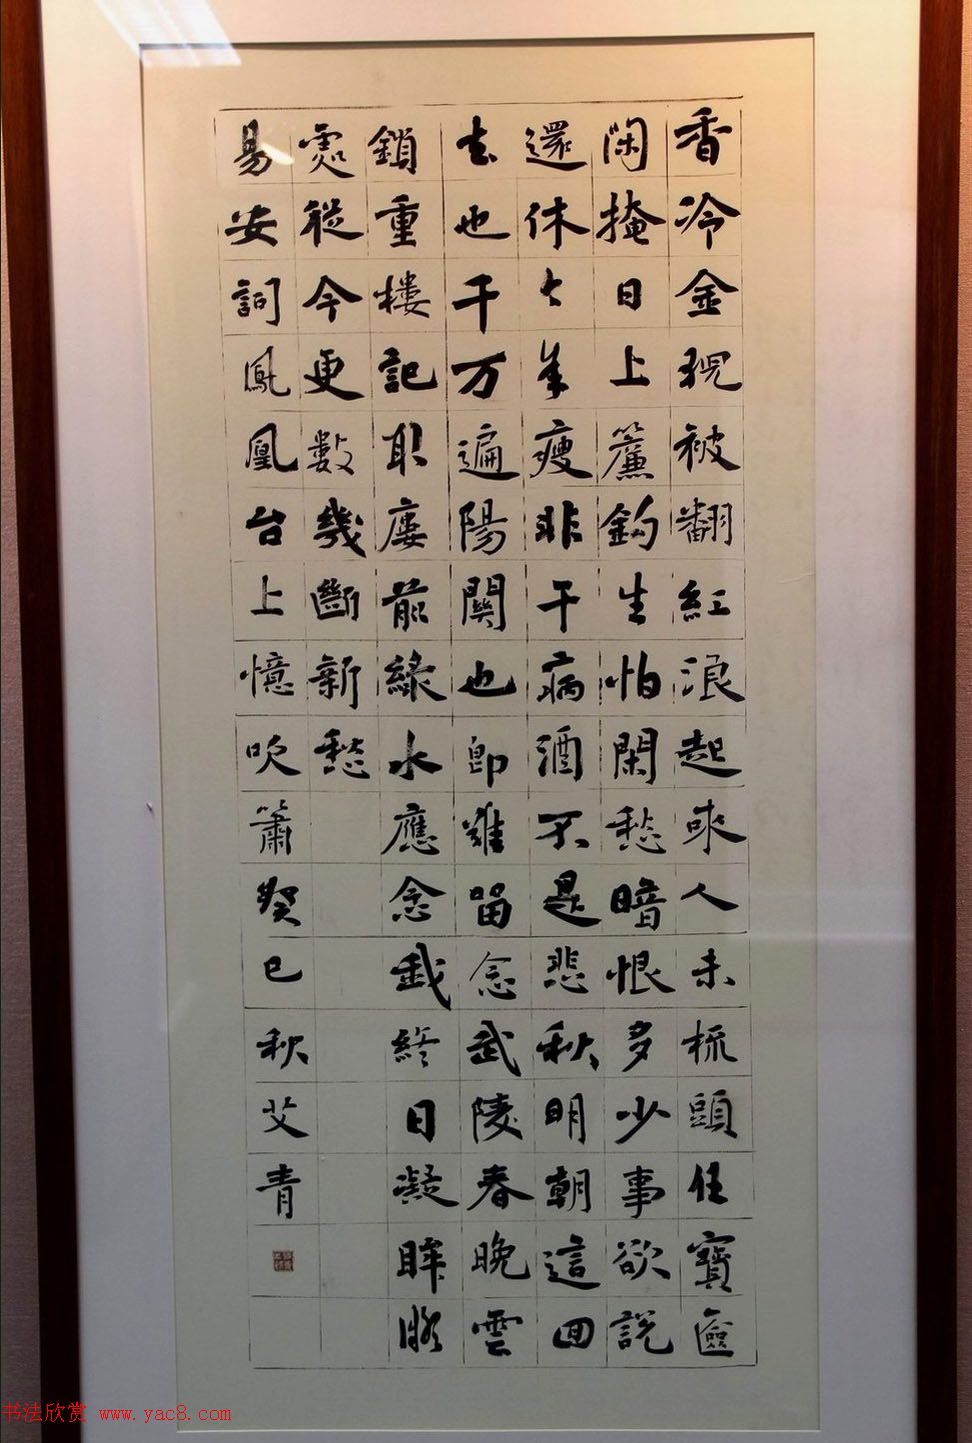 香冷金猊被翻紅浪起來人未梳頭任寶匳
閑掩日上簾鉤生怕閑愁暗恨多少事欲說
還休今年瘦非干病酒不是悲秋明朝這回
去也千万遍陽關也即難留念武陵春晚雲
鎖重樓記取廔前綠水應念我終日凝眸眸
處從今更數幾斷新愁
易安詞鳳凰台上憶吹簫癸巳秋艾青
书法欣赏 www.yac8.com